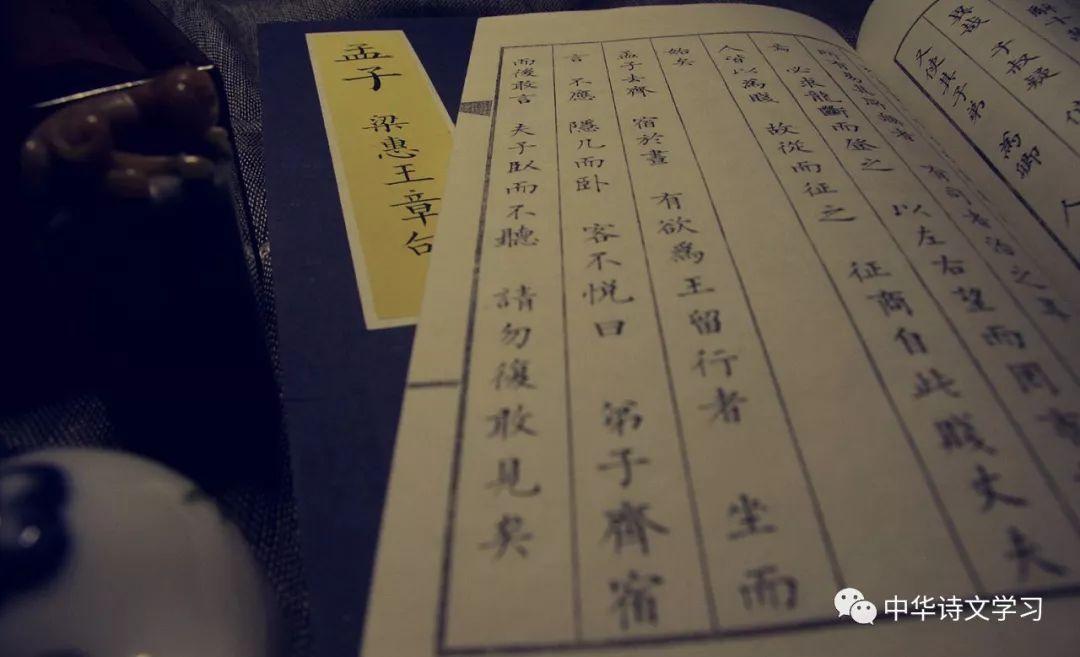 孟子 梁惠王章句
子叔疑
又使其子弟 為卿 人
有司者治之耳
焉 必求龍斷而登之 以左右望而罔市
人皆以為賤 故從而征之 征商自此賤丈夫
始矣
孟子去齊 宿於晝 有欲為王留行者 坐而
言 不應 隱几而卧 客不悦曰 弟子齊宿
而後敢言 夫子臥而不聽 請勿復敢見矣
中华诗文学习